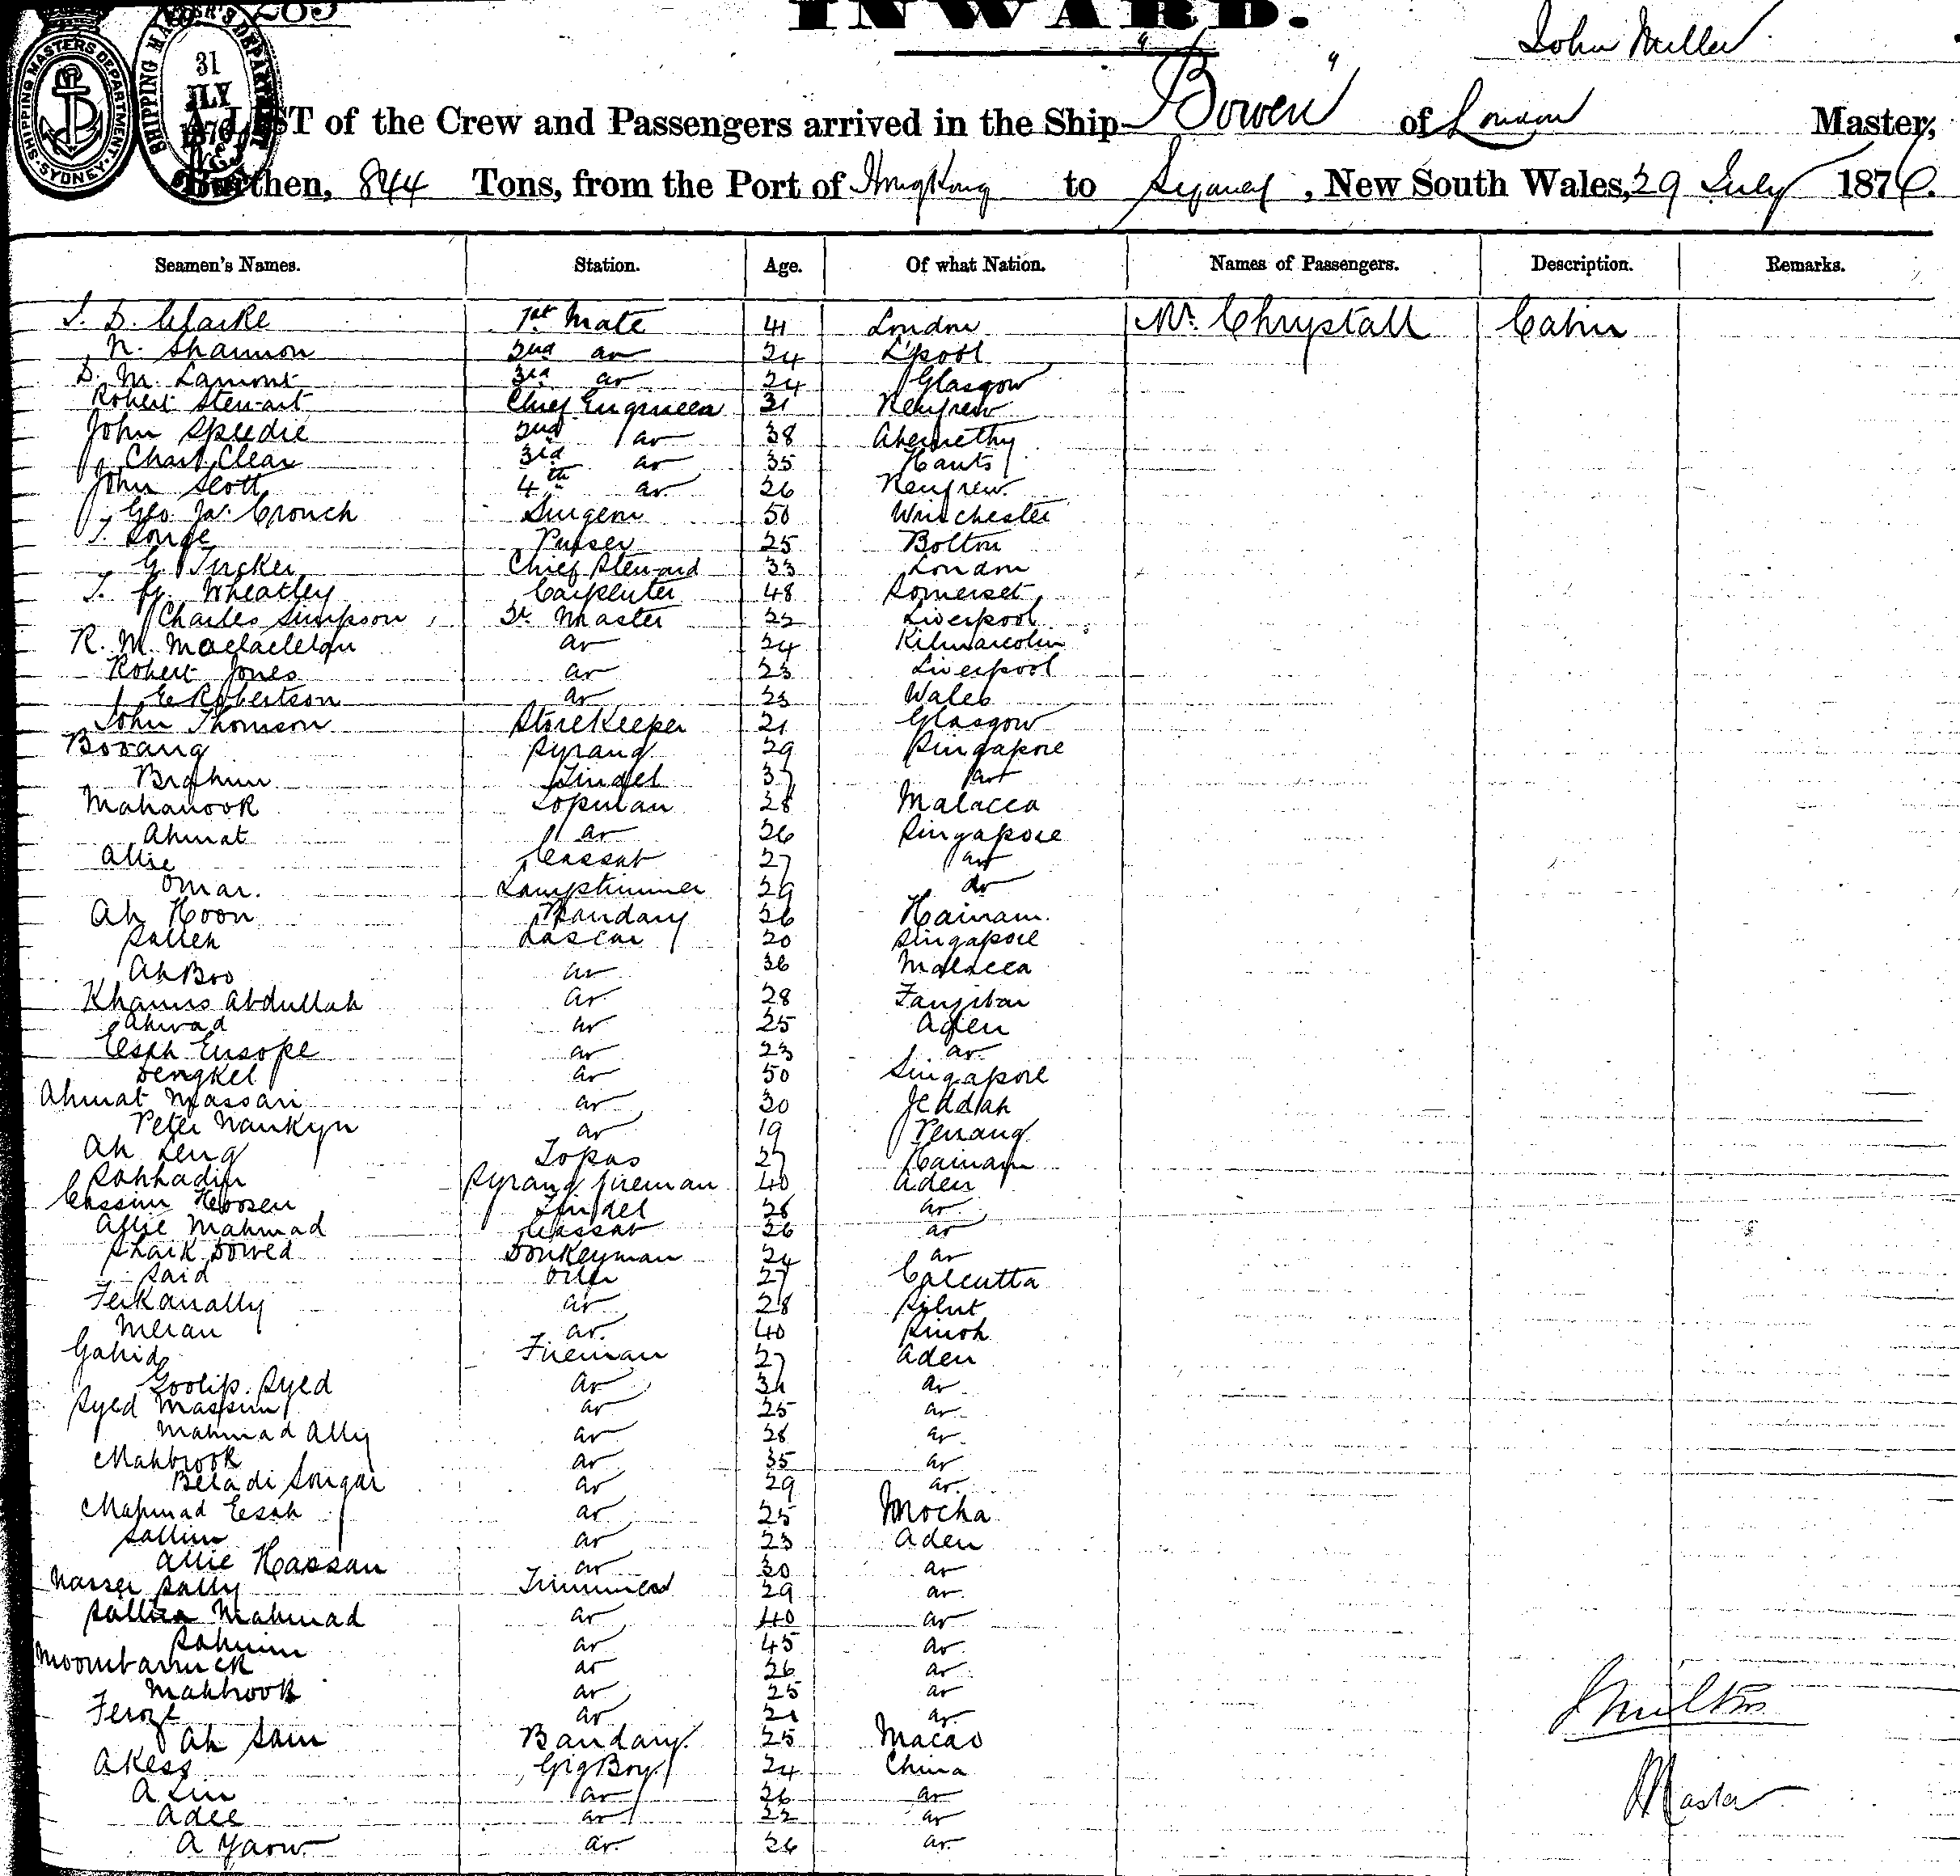 No. 285
INWARD.
John Miller
SHIPPING MASTERS DEPARTMENT SYDNEY
SHIPPING MASTER'S DEPARTMENT
31 JLY 1876
A LIST of the Crew and Passengers arrived in the Ship "Bowen" of London Master,
Burthen, 844 Tons, from the Port of HongKong to Sydney, New South Wales, 29 July 1876.
Seamen's Names. Station. Age. Of what Nation. Names of Passengers. Description. Remarks.
J. D. Clarke 1st Mate 41 London Mr. Chrystall Cabin
N. Shannon 2nd do 24 L'pool
D. M. Lamont 3rd do 24 Glasgow
Robert Stewart Chief Engineer 31 Renfrew
John Speedie 2nd do 38 Abernethy
Chas. Clear 3rd do 35 Hants
John Scott 4th do 26 Renfrew
Geo. Ja. Crouch Surgeon 50 Winchester
T. Purser 25 Bolton
G. Tucker Chief Steward 33 London
T. G. Wheatley Carpenter 48 Somerset
Charles Simpson Qr. Master 22 Liverpool
R. M. do 24 Kilmarcolm
Robert Jones do 23 Liverpool
E. Robertson do 23 Wales
John Thomson StoreKeeper 21 Glasgow
Booang Syrang 29 Singapore
Brahim Tindel 37 do
Mahanook 28 Malacca
Ahmat do 26 Singapore
Allie Cassab 27 do
Omar. Lamptrimmer 29 do
Ah Hoon Bandary 26 Hainam.
Salleh Lascar 20 Singapore
Ah Boo do 36 Malacca
Khamis Abdullah do 28 Zanzibar
Ahwad do 25 Aden
Eesah Eusope do 23 do
Dengkel do 50 Singapore
Ahmat Massan do 30 Jeddah
Peter Nankyn do 19 Penang
Ah Leng Topas 27 Hainam
Sahhadin Syrang fireman 40 Aden
Cassim Hoosen Tindel 28 do
Allie Mahmad Cassab 26 do
Shaik Dowed Donkeyman 24 do
Said Oiler 27 Calcutta
Ferkanally do 28 Silut
Meran do. 40
Gahid Fireman 27 Aden
Goolip Syed do 34 do
Syed Massim do 25 do
Mahmad Ally do 28 do
Mahbrook do 35 do
Beladi Songar do 29 do
Mahmad Eesah do 25 Mocha
Sallim do 23 Aden
Allie Hassan do 30 do
Nasser Sally Trimmer 29 do
Mahmad do 40 do
Sahim do 45 do
Moombarruck do 26 do
Mahbrook do 25 do
Feroze do 21 do
Ah Sam Bandary 25 Macao
Akess GigBoy 24 China
A Lin do 26 do
Adee do 22 do
A Yaow do 26 do
J Miller
Master